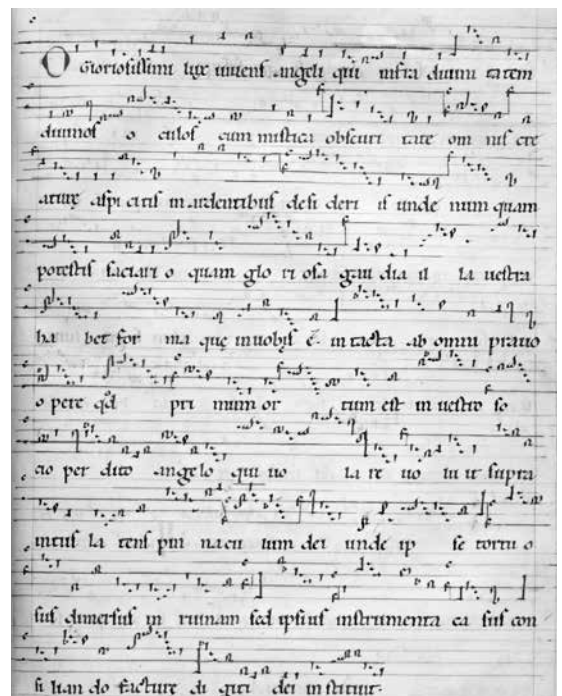 O Gloriosissimi lux uiuens angeli qui infra diuini tatem
diuinos o culos cum mistica obscuri tate om nis cre
aturę aspi citis in ardentibus desi deri is unde num quam
potestis saciari o quam glo ri osa gau dia il la uestra
ha bet for ma quę in uobis ē in tacta ab omni prauo
o pere qd pri mum or tum est in uestro so
cio per dito angelo qui uo la re uo lu it supra
intus la tens pin nacu lum dei unde ip se tortu o
sus dimersus in ruinam sed ipsius instrumenta ca sus con
si lian do facturę di giti dei in stituit.